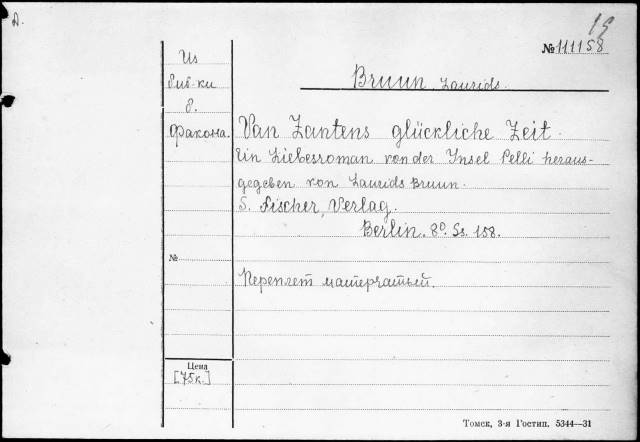 А.
№ 111158
Из
биб-ки
б.
Факона.
Bruun, Laurids.
Van Zantens glückliche Zeit.
Ein Liebesroman von der Insel Pelli heraus-
gegeben von Laurids Bruun.
S. Fischer, Verlag.
Berlin. 8°. Ss. 158.
№
Переплет матерчатый.
Цена
[75к.]
Томск, 3-я Гостип. 5344—31